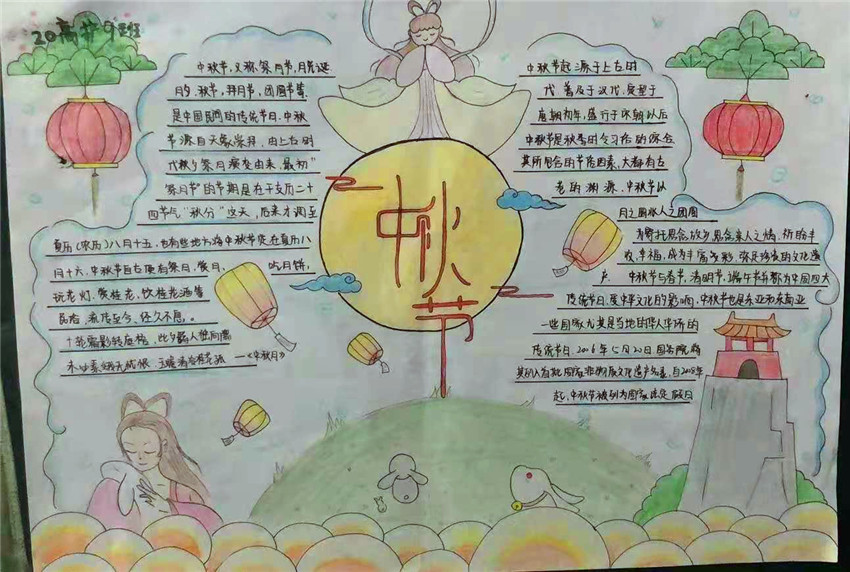 20高护9班
中秋节,又称祭月节,月光诞
月夕,秋节,拜月节,团圆节等,
是中国民间的传统节日,中秋
节源自天象崇拜,由上古时
代秋夕祭月演变由来,最初"
祭月节"的节期是在干支历二十
四节气"秋分"这天,后来才调至
夏历(农历)八月十五,也有些地方将中秋节定在夏历八
月十六,中秋节自古便有祭月、赏月、吃月饼、
玩花灯、赏桂花、饮桂花酒等
民俗,流传至今,经久不息。
十轮霜影转庭梧,此夕羁人独向隅
未必素娥无怅恨,玉蟾清冷桂花孤 —《中秋月》
中秋节
中秋节起源于上古时
代,普及于汉代,定型于
唐朝初年,盛行于宋朝以后
中秋节是秋季时令习俗的综合,
其所包含的节俗因素,大都有古
老的渊源、中秋节以
月之圆兆人之团圆
为寄托思念故乡,思念亲人之情,祈盼丰
收、幸福,成为丰富多彩、弥足珍贵的文化遗
产 中秋节与春节、清明节、端午节并称为中国四大
传统节日,受中华文化的影响,中秋节也是东亚和东南亚
一些国家尤其是当地的华人华侨的
传统节日.2016年5月20日国务院将
其列入首批国家非物质文化遗产名录,自2008年
起,中秋节被列为国家法定假日